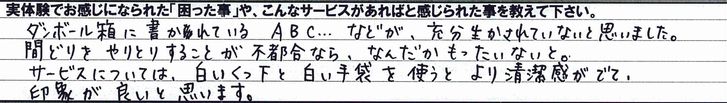 実体験でお感じになられた「困った事」や、こんなサービスがあればと感じられた事を教えて下さい。
ダンボール箱に書かれている ABC… などが、充分生かされていないと思いました。
間どりを やりとりすることが 不都合なら、なんだか もったいないなと。
サービスについては、白いくつ下と 白い手袋 を 使うと より 清潔感がでて、
印象が 良いと思います。